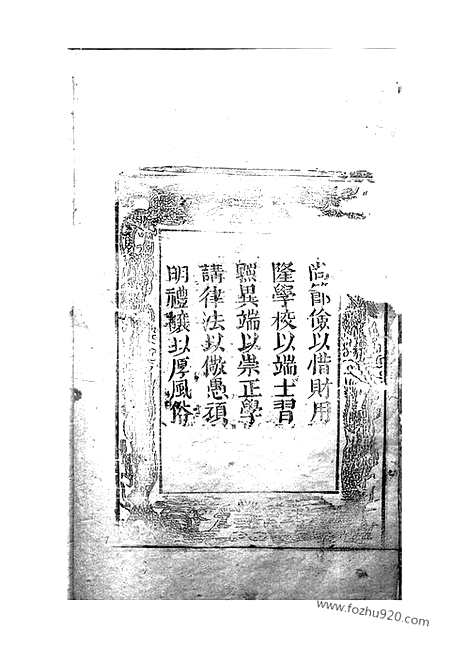 尚節儉以惜財用
隆學校以端士習
黜異端以崇正學
講律法以儆愚頑
明禮讓以厚風俗
www.fozhu920.com